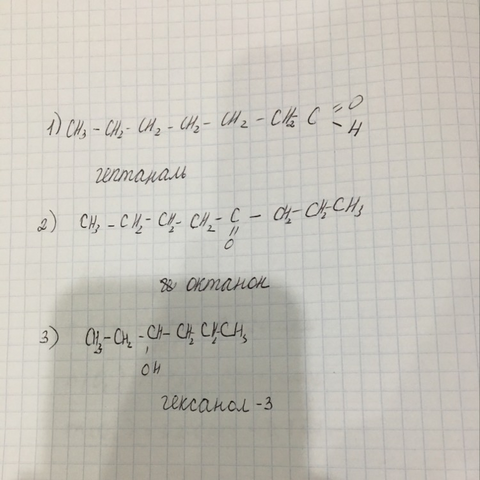 1) CH₃ – CH₂ – CH₂ – CH₂ – CH₂ – CH₂ C =O –H
гептаналь
2) CH₃ – CH₂ – CH₂ – CH₂ – C – CH₂ – CH₂ CH₃
=
O
октанон
3) CH₃ – CH₂ – CH – CH₂ CH₂ CH₃
OH
гексанол - 3